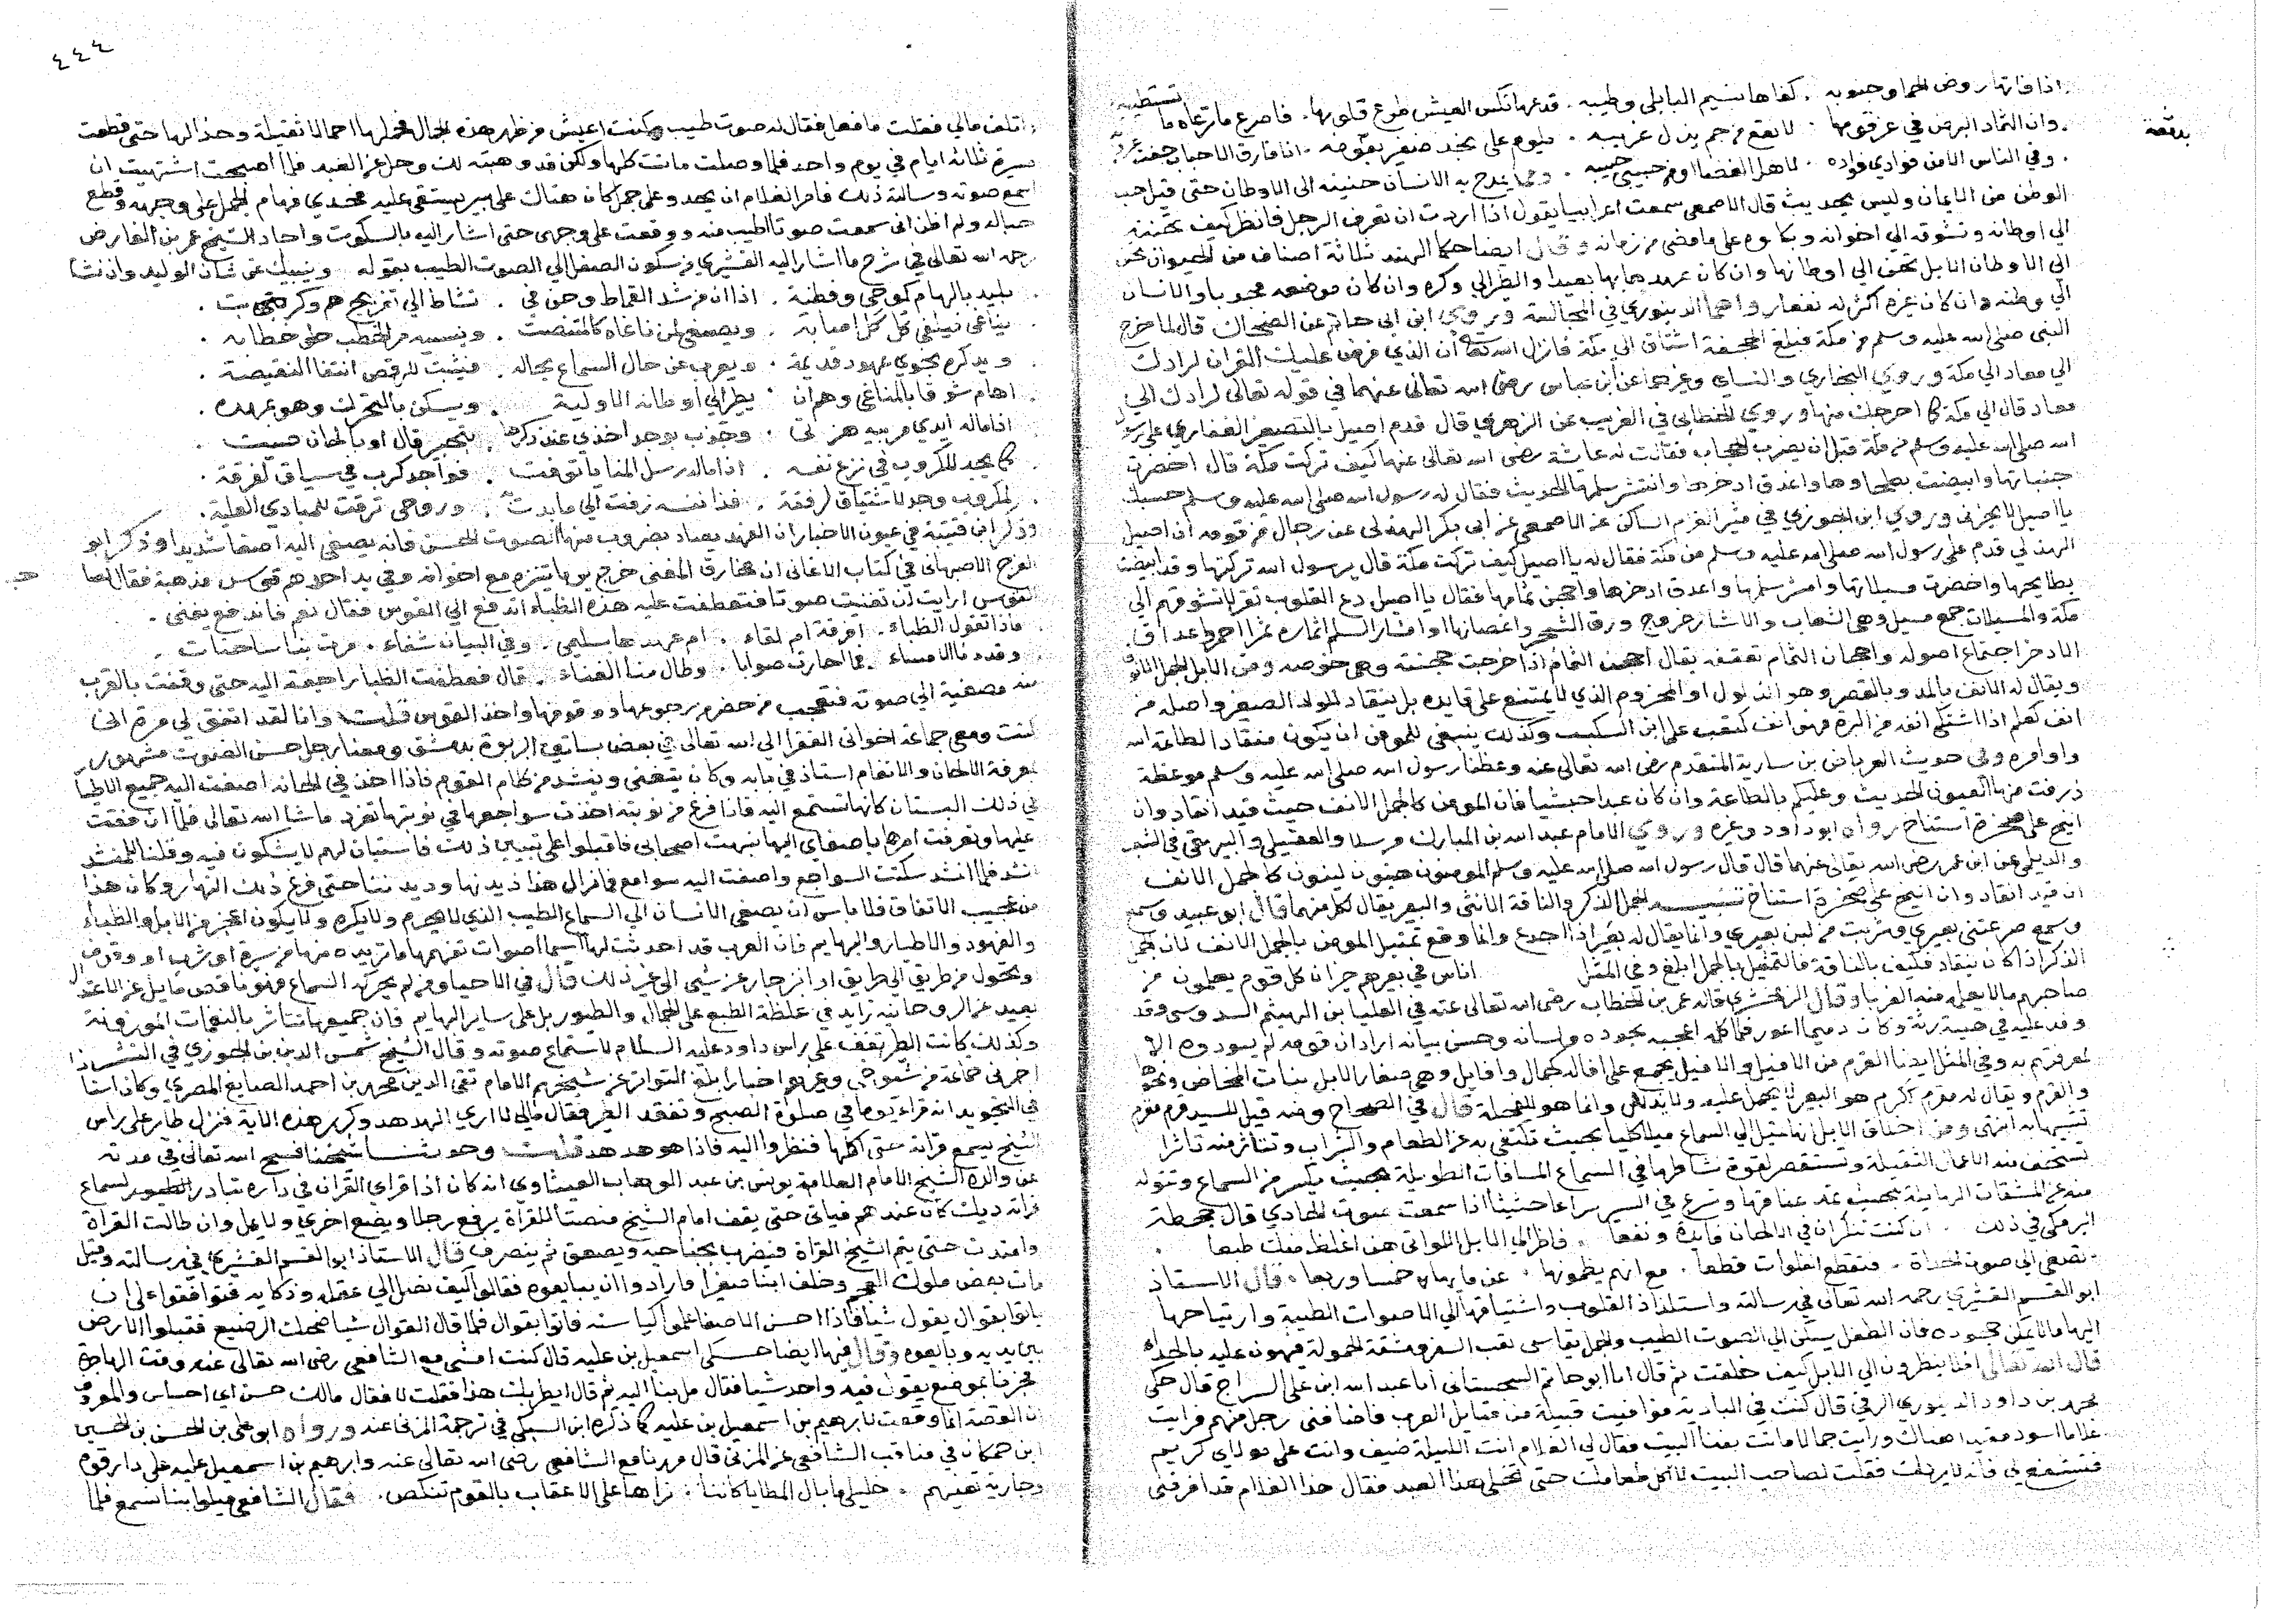 اذا فاتها روض الحما وجنوبه . كفاها نسيم البابلي وطيبه . فدعها تكس العيش طوع قلوبها . فامرع ما ترعاه ما تستطيبه
وان الثماد البرض في عز قومها . لا نقع من جم يذل غريبه . يلوم على نجد ضنين بقومه . اذا فارق الاحباب جفت غروبه
وفي الناس الا من فوادي فواده . لاهل الغضا او من حبيبي حبيبه . ومما يمدح به الانسان حنينه الى الاوطان حتى قيل حب
الوطن من الايمان وليس بحديث قال الاصمعي سمعت اعرابيا يقول اذا اردت ان تعرف الرجل فانظر كيف تحننه
الى اوطانه وتشوقه الى اخوانه وبكاوه على ما مضى من زمانه وقال ايضا حكما الهند ثلاثة اصناف من الحيوان تحن
الى الاوطان الابل تحن الى اوطانها وان كان عهدها بها بعيدا والطير الى وكره وان كان موضعه مجدوبا والانسان
الى وطنه وان كان غيره اكثر له نفعا رواهما الدينوري في المجالسة وروى ابن ابي حاتم عن الضحاك قال لما خرج
النبي صلى الله عليه وسلم من مكة فبلغ الجحفة اشتاق الى مكة فانزل الله تعالى ان الذي فرض عليك القران لرادك
الى معاد الى مكة وروى البخاري والنساي وغيرهما عن ابن عباس رضي الله تعالى عنهما في قوله تعالى لرادك الى
معاد قال الى مكة كما اخرجك منها وروى الخطابي في الغريب عن الزهري قال قدم اصيل بالتصغير الغفاري على رسول
الله صلى الله عليه وسلم من مكة قبل ان يضرب الحجاب فقالت له عائشة رضي الله تعالى عنها كيف تركت مكة قال اخضرت
جنباتها وابيضت بطحاوها واعذق اذخرها وانتشر سلمها الحديث فقال له رسول الله صلى الله عليه وسلم حسبك
يا اصيل لا تحزني وروى ابن الجوزي في مثير الغرم الساكن عن الاصمعي عن ابي بكر الهذلي عن رجال من قومه ان اصيل
الهذلي قدم على رسول الله صلى الله عليه وسلم من مكة فقال له يا اصيل كيف تركت مكة قال يرسول الله تركتها وقد ابيضت
بطايحها واخضرت مسيلاتها وامشر سلمها واعذق اذخرها واحجن ثمامها فقال يا اصيل دع القلوب تقر لا تشوقهم الى
مكة والمسيلات جمع مسيل وهي الشعاب والامشار خروج ورق الشجر واغصانها او امشار السلم اثماره ثمرا احمر واعذاق
الاذخر اجتماع اصوله واحجان الثمام تعقفه يقال احجن الثمام اذا خرجت حجنته وهي خوصه ومن الابل الجمل الانف
ويقال له الانف بالمد وبالقصر وهو الذلول او المخزوم الذي لا يمتنع على قايده بل ينقاد للولد الصغير واصله من
انف كعلم اذا اشتكى انفه من البرة فهو انف كتعب على ابن السكيت وكذلك ينبغي للمومن ان يكون منقادا لطاعة الله
واوامره وفي حديث العرباض بن سارية المتقدم رضي الله تعالى عنه وعظنا رسول الله صلى الله عليه وسلم موعظة
ذرفت منها العيون الحديث وعليكم بالطاعة وان كان عبدا حبشيا فان المومن كالجمل الانف حيث قيد انقاد وان
انيخ على صخرة استناخ رواه ابو داود وغيره وروى الامام عبد الله بن المبارك مرسلا والعقيلي والبيهقي في الشعب
والديلمي عن ابن عمر رضي الله تعالى عنهما قال قال رسول الله صلى الله عليه وسلم المومنون هينون لينون كالجمل الانف
ان قيد انقاد وان انيخ على صخرة استناخ تنبيه الجمل الذكر والناقة الانثى والبعير يقال لكل منهما قال ابو عبيد وسمع
وسمع صرعتني بعيري وشربت من لبن بعيري وانما يقال له بعير اذا اجدع وانما وقع تمثيل المومن بالجمل الانف لان الجمل
الذكر اذا كان ينقاد فكيف بالناقة فالتمثيل بالجمل ابلغ وفي المثل اناس في بعيرهم خبر ان كل قوم يعلمون من
صاحبهم ما لا يعلمه منه الغربا وقال الزمخشري قاله عمر بن الخطاب رضي الله تعالى عنه في العلبا بن الهيثم السدوسي وقد
وفد عليه في هيئة رثة وكان دميما اعور فلما كلمه اعجبه بجوده ولسانه وحسن بيانه اراد ان قومه لم يسودوه الا
لمعرفتهم به وفي المثل ايضا القرم من الافيل والافيل يجمع على افال كجمال وافايل وهي صغار الابل بنات المخاض ونحوها
والقرم ويقال له مقرم كمكرم هو البعير لا يحمل عليه ولا يذلل وانما هو للفحلة قال في الصحاح ومنه قيل للسيد قرم مقرم
تشبيها به انتهى ومن اخلاق الابل انها تميل الى السماع ميلا كليا بحيث تكتفي به عن الطعام والشراب وتتاثر منه تاثرا
تستخف منه الاحمال الثقيلة وتستقصر لقوة نشاطها في السماع المسافات الطويلة بحيث يكسر من السماع وتتوله
منه عن المشقات الرمانية بحيث تمد عناقها وتسرع في السير سراعا حثيثا اذا سمعت صوت الحادي قال جحظة
البرمكي في ذلك . ان كنت تنكر ان في الالحان فايدة ونفعا . فانظر الى الابل اللواتي هن اغلظ منك طبعا .
تصغي الى صوت الحداة . فتقطع الفلوات قطعا . مع انهم يظمونها . عن مايها خمسا وربعا . قال الاستاذ
ابو القسم القشيري رحمه الله تعالى في رسالته واستلذاذ القلوب واشتياقها الى الاصوات الطيبة وارتياحها
اليها مما لا يمكن جحوده فان الطفل يسكن الى الصوت الطيب والجمل يقاسي تعب السفر ومشقة الحمولة فيهون عليه بالحداء
قال الله تعالى افلا ينظرون الى الابل كيف خلقت ثم قال انا ابو حاتم السجستاني انا عبد الله ابن علي السراج قال حكى
محمد بن داود الدينوري الرقي قال كنت في البادية فوافيت قبيلة من قبايل العرب فاضافني رجل منهم فرايت
غلاما اسود مقيدا هناك ورايت جمالا ماتت بفنا البيت فقال لي الغلام انت الليلة ضيف وانت على مولاي كريم
فتشفع لي فانه لا يردك فقلت لصاحب البيت لا اكل طعامك حتى تحل هذا العبد فقال هذا الغلام قد افقرني
بدقعة
٤٤٤
واتلف مالي فقلت ما فعل فقال له صوت طيب وكنت اعيش من ظهر هذه الجمال فحملها احمالا ثقيلة وحدا لها حتى قطعت
مسيرة ثلاثة ايام في يوم واحد فلما وصلت ماتت كلها ولكن قد وهبته لك وحل عن العبد فلما اصبحت اشتهيت ان
اسمع صوته وسالته ذلك فامر الغلام ان يحدو على جمل كان هناك على بير يستقي عليه فحدى فهام الجمل على وجهه وقطع
حباله ولم اظن اني سمعت صوتا اطيب منه ووقعت على وجهي حتى اشار اليه بالسكوت واجاد الشيخ عمر بن الفارض
رحمه الله تعالى في شرح ما اشار اليه القشيري من سكون الطفل الى الصوت الطيب بقوله وينبيك عن شان الوليد وان نشا
بليد بالهام كوحي وفطنة . اذا ان من شد القماط وحن في . نشاط الى تفريج هم وكربة .
يناغى فيلغي كل كل اصابه . ويصغي لمن ناغاه كالمتنصت . وينسيه مر الخطب حلو خطابه .
ويذكره نجوى عهود قديمة . ويعرب عن حال السماع بحاله . فيثبت للرقص انتفا النقيصة .
اذا هام شوقا بالمناغي وهم ان . يطير الى اوطانه الاولية . ويسكن بالتحريك وهو بمهده .
اذا ماله ايدي مربيه هزت . وجدت بوجد اخذي عند ذكرها . بتحبير قال او بالحان صيت .
كما يجد المكروب في نزع نفسه . اذا ماله رسل المنايا توفت . فواجد كرب في سياق لفرقة .
كمكروب وجد لاشتياق لرفقة . فذا نفسه رقت الى ما بدت به . وروحي ترقت للمبادي العلية .
وذكر ابن قتيبة في عيون الاخبار ان الفهد يصاد بضروب منها الصوت الحسن فانه يصغي اليه اصغا شديدا وذكر ابو
الفرج الاصبهاني في كتاب الاغاني ان مخارق المغني خرج يوما يتنزه مع اخوانه وفي يد احدهم قوس مذهبة فقال لصاحب
القوس ارايت ان تغنيت صوتا فتعطفت عليه هذه الظباء اتدفع الى القوس فقال نعم فاندفع يغني .
ماذا تقول الظباء . افرقة ام لقاء . ام عهدها بسليمي . وفي البيان شفاء . مرت بنا سانحات
وقد دنا الامساء . فما احارت جوابا . وطال منا العناء . قال فعطفت الظبا راجعة اليه حتى وقفت بالقرب
منه مصغية الى صوته فتعجب من حضر من رجوعها ووقوفها واخذ القوس قلت وانا لقد اتفق لي مرة اني
كنت ومعي جماعة اخواني الفقرا الى الله تعالى في بعض بساتين الربوة بدمشق ومعنا رجل حسن الصوت مشهور
بمعرفة الالحان والانغام استاذ في بابه وكان يتغنى وينشد من كلام القوم فاذا اخذ في الحانه اصغت اليه جميع الاطيار
في ذلك البستان كانها تستمع اليه فاذا فرغ من نوبته اخذت سواجعها في نوبتها تغرد ما شا الله تعالى فلما ان وقفت
عليها وتعرفت امرها باصغاي اليها نبهت اصحابي فاقبلوا على تبيين ذلك فاستبان لهم لا يشكون فيه وقلنا للمنشد
انشد فلما انشد سكتت السواجع واصغت اليه سوامع فما زال هذا ديدنها وديدننا حتى فرغ ذلك النهار وكان هذا
من عجيب الاتفاق فلا باس ان يصغي الانسان الى السماع الطيب الذي لا يحرم ولا يكره ولا يكون اعجز من الابل والظباء
والفهود والاطيار والبهايم فان العرب قد احدثت لها اسما اصوات تفهمها ما تريده منها من سير او شرب او وقوف
وتحول من طريق الى طريق او انزجار عن شيى الى غير ذلك قال في الاحيا ومن لم يحركه السماع فهو ناقص مايل عن الاعتدال
بعيد عن الروحانية زايد في غلظة الطبع على الجمال والطيور بل على ساير البهايم فان جميعها تتاثر بالنغمات الموزونة
وكذلك كانت الطير تقف على راس داود عليه السلام لاستماع صوته وقال الشيخ شمس الدين بن الجوزي في النشر
اخبرني جماعة من شيوخي وغيرهم اخبارا بلغ التواتر عن شيخهم الامام تقي الدين محمد بن احمد الصايغ المصري وكان استاذا
في التجويد انه قراء يوما في صلوة الصبح وتفقد الطير فقال مالي لا ارى الهدهد وكرر هذه الاية فنزل طاير على راس
الشيخ يسمع قراته حتى اكملها فنظروا اليه فاذا هو هدهد قلت وحدثنا شيخنا فسح الله تعالى في مدته
عن والده الشيخ الامام العلامة يونس بن عبد الوهاب العيثاوي انه كان اذا قراي القران في داره تبادر الطيور لسماع
قراته ديك كان عندهم فياتي حتى يقف امام الشيخ منصتا للقراة يرفع رجلا ويضع اخرى ولا يمل وان طالت القراة
وامتدت حتى يتم الشيخ القراة فيضرب بجناحيه ويصعق ثم ينصرف قال الاستاذ ابو القسم القشيري في رسالته وقيل
مات بعض ملوك العجم وخلف ابنا صغيرا فارادوا ان يبايعوه فقالوا كيف نصل الى عقله وذكايه فتوافقوا على ان
ياتوا بقوال يقول شيا فاذا احسن الاصغا علموا كياسته فاتوا بقوال فلما قال القوال شيا ضحك الرضيع فقبلوا الارض
بين يديه وبايعوه وقال فيها ايضا حكى اسمعيل بن علية قال كنت امشي مع الشافعي رضي الله تعالى عنه وقت الهاجرة
فجزنا بموضع يقول فيه واحد شيا فقال مل بنا اليه ثم قال ايطربك هذا فقلت لا فقال مالك حس اي احساس والمعروف
ان القصة انما وقعت لابرهيم بن اسمعيل بن علية كما ذكره ابن السبكي في ترجمة المزني عنه ورواه ابو علي بن الحسن بن الحسين
ابن حمكان في مناقب الشافعي عن المزني قال مررنا مع الشافعي رضي الله تعالى عنه وابرهيم بن اسمعيل علية على دار قوم
وجارية تغنيهم . خليلي ما بال المطايا كاننا . نراها على الاعقاب بالقوم تنكص . فقال الشافعي ميلوا بنا نسمع فلما